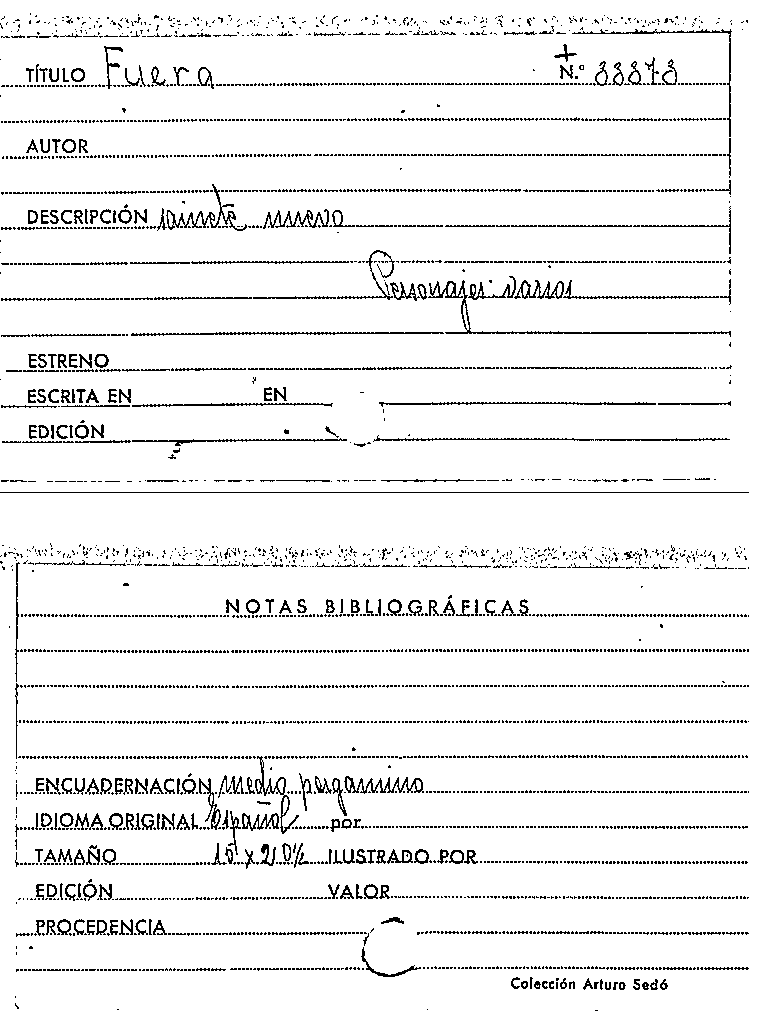 TÍTULO Fuera + N.º 33873
AUTOR
DESCRIPCIÓN sainete nuevo
Personajes: varios
ESTRENO
ESCRITA EN EN
EDICIÓN
NOTAS BIBLIOGRÁFICAS
ENCUADERNACIÓN medio pergamino
IDIOMA ORIGINAL español por
TAMAÑO 15 x 21
ILUSTRADO POR
EDICIÓN VALOR
PROCEDENCIA
Colección Arturo Sedó